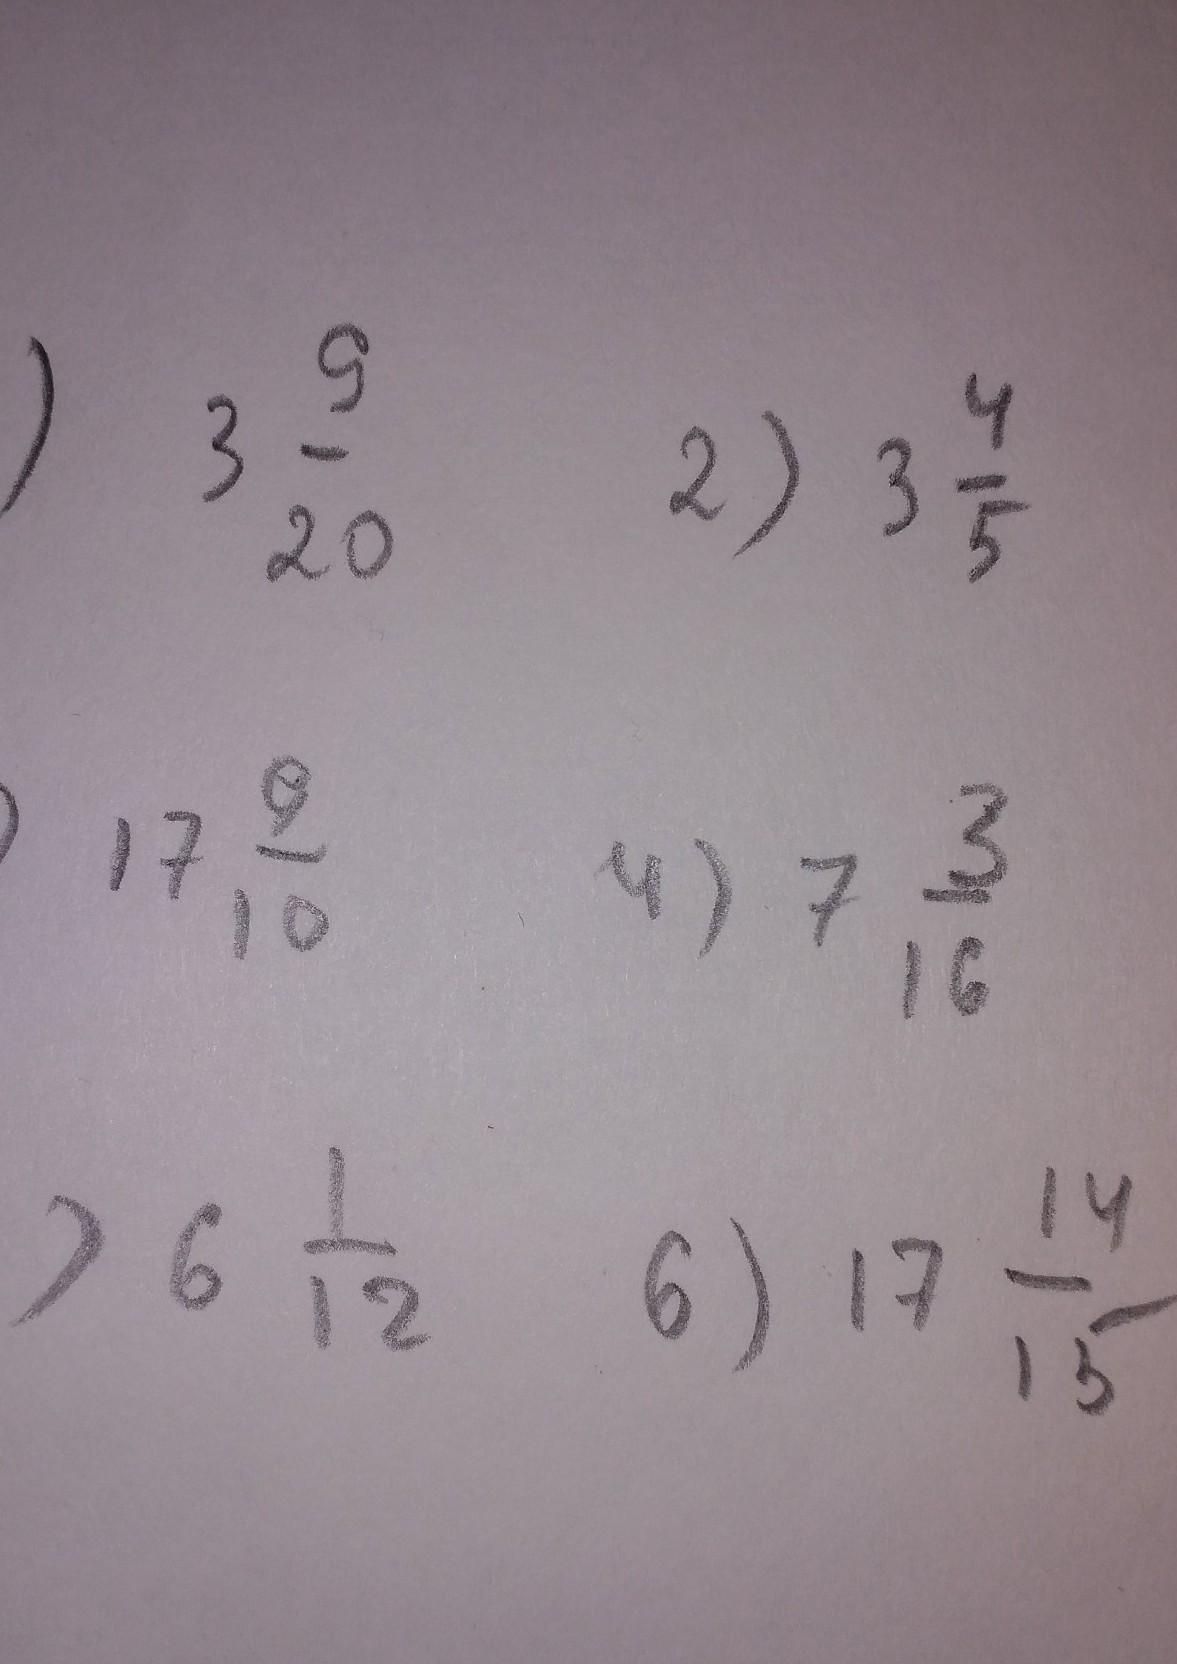 ) 3 9/20 2) 3 4/5
) 17 9/10 4) 7 3/16
) 6 1/12 6) 17 14/15